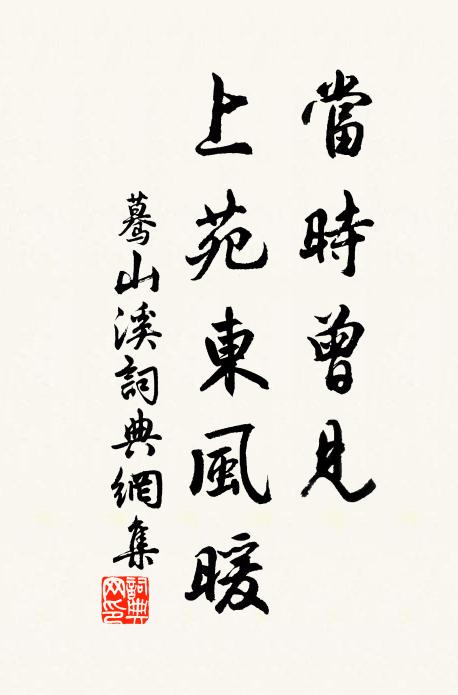 當時曾見
上苑東風暖
蓦山溪詞典網集
詞典網印